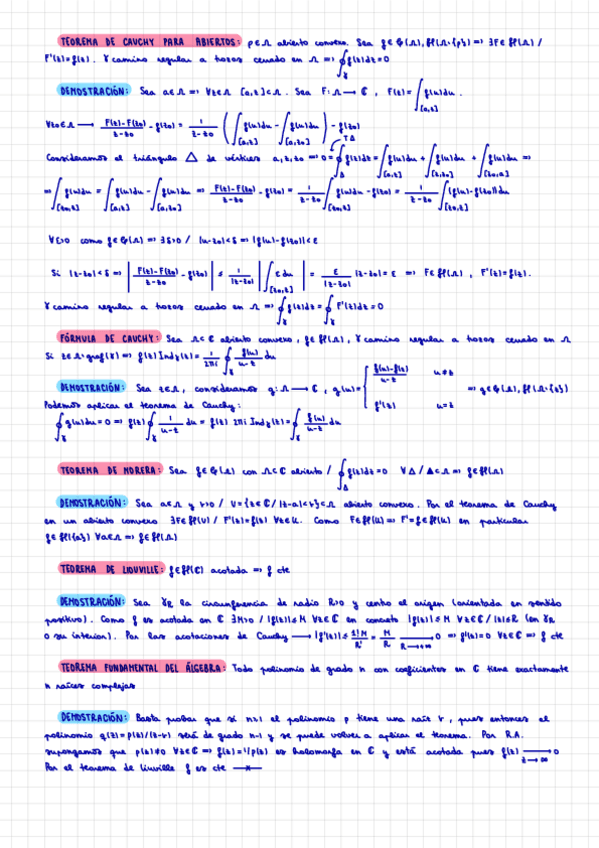 TEOREMA DE CAUCHY PARA ABIERTOS: p∈Ω abierto convexo. Sea f∈C(Ω), H(Ω-{p}) ⇒ ∃F∈H(Ω) /
F'(z)=f(z). γ camino regular a trozos cerrado en Ω ⇒ ∮_γ f(z)dz=0
DEMOSTRACIÓN: Sea a∈Ω ⇒ ∀z∈Ω [a,z]⊂Ω. Sea F:Ω→ℂ, F(z)=∫_[a,z] f(u)du.
∀z₀∈Ω → (F(z)-F(z₀))/(z-z₀) - f(z₀) = 1/(z-z₀) (∫_[a,z] f(u)du - ∫_[a,z₀] f(u)du) - f(z₀)
Consideramos el triángulo △ de vértices a,z,z₀ ⇒ 0 = ∮_Δ f(z)dz = ∫_[a,z] f(u)du + ∫_[z,z₀] f(u)du + ∫_[z₀,a] f(u)du ⇒
TΔ
⇒ ∫_[z₀,z] f(u)du = ∫_[a,z] f(u)du - ∫_[a,z₀] f(u)du ⇒ (F(z)-F(z₀))/(z-z₀) - f(z₀) = 1/(z-z₀) ∫_[z₀,z] f(u)du - f(z₀) = 1/(z-z₀) ∫_[z₀,z] (f(u)-f(z₀))du
∀ε>0 como f∈C(Ω) ⇒ ∃δ>0 / |u-z₀|<δ ⇒ |f(u)-f(z₀)|<ε
Si |z-z₀|<δ ⇒ |(F(z)-F(z₀))/(z-z₀) - f(z₀)| ≤ 1/|z-z₀| |∫_[z₀,z] ε du| = ε/|z-z₀| |z-z₀| = ε ⇒ F∈H(Ω), F'(z)=f(z).
γ camino regular a trozos cerrado en Ω ⇒ ∮_γ f(z)dz = ∮_γ F'(z)dz = 0
FÓRMULA DE CAUCHY: Sea Ω⊂ℂ abierto convexo, f∈H(Ω), γ camino regular a trozos cerrado en Ω
Si z∈Ω-graf(γ) ⇒ f(z) Ind_γ(z) = 1/2πi ∮_γ f(u)/(u-z) du
DEMOSTRACIÓN: Sea z∈Ω, consideramos g:Ω→ℂ, g(u)= { (f(u)-f(z))/(u-z) u≠z ; f'(z) u=z ⇒ g∈C(Ω), H(Ω-{z})
Podemos aplicar el teorema de Cauchy:
∮_γ g(u)du=0 ⇒ f(z) ∮_γ 1/(u-z) du = f(z) 2πi Ind_γ(z) = ∮_γ f(u)/(u-z) du
TEOREMA DE MORERA: Sea f∈C(Ω) con Ω⊂ℂ abierto / ∮_Δ f(z)dz=0 ∀Δ/▲⊂Ω ⇒ f∈H(Ω)
DEMOSTRACIÓN: Sea a∈Ω y r>0 / U={z∈ℂ/|z-a|<r}⊂Ω abierto convexo. Por el teorema de Cauchy
en un abierto convexo ∃F∈H(U) / F'(z)=f(z) ∀z∈U. Como F∈H(U) ⇒ F'=f∈H(U) en particular
f∈H({a}) ∀a∈Ω ⇒ f∈H(Ω)
TEOREMA DE LIOUVILLE: f∈H(ℂ) acotada ⇒ f cte
DEMOSTRACIÓN: Sea γR la circunferencia de radio R>0 y centro el origen (orientada en sentido
positivo). Como f es acotada en ℂ ∃M>0 / |f(z)|≤M ∀z∈ℂ en concreto |f(z)|≤M ∀z∈ℂ/|z|≤R (en γR
o su interior). Por las acotaciones de Cauchy → |f'(z)|≤ 1!M/R¹ = M/R →_{R→+∞} 0 ⇒ f'(z)=0 ∀z∈ℂ ⇒ f cte
TEOREMA FUNDAMENTAL DEL ÁLGEBRA: Todo polinomio de grado n con coeficientes en ℂ tiene exactamente
n raíces complejas
DEMOSTRACIÓN: Basta probar que si n≥1 el polinomio p tiene una raíz r, pues entonces el
polinomio q(z)=p(z)/(z-r) será de grado n-1 y se puede volver a aplicar el teorema. Por R.A.
supongamos que p(z)≠0 ∀z∈ℂ ⇒ f(z)=1/p(z) es holomorfa en ℂ y está acotada pues f(z) →_{z→∞} 0
Por el teorema de Liuville f es cte —×—